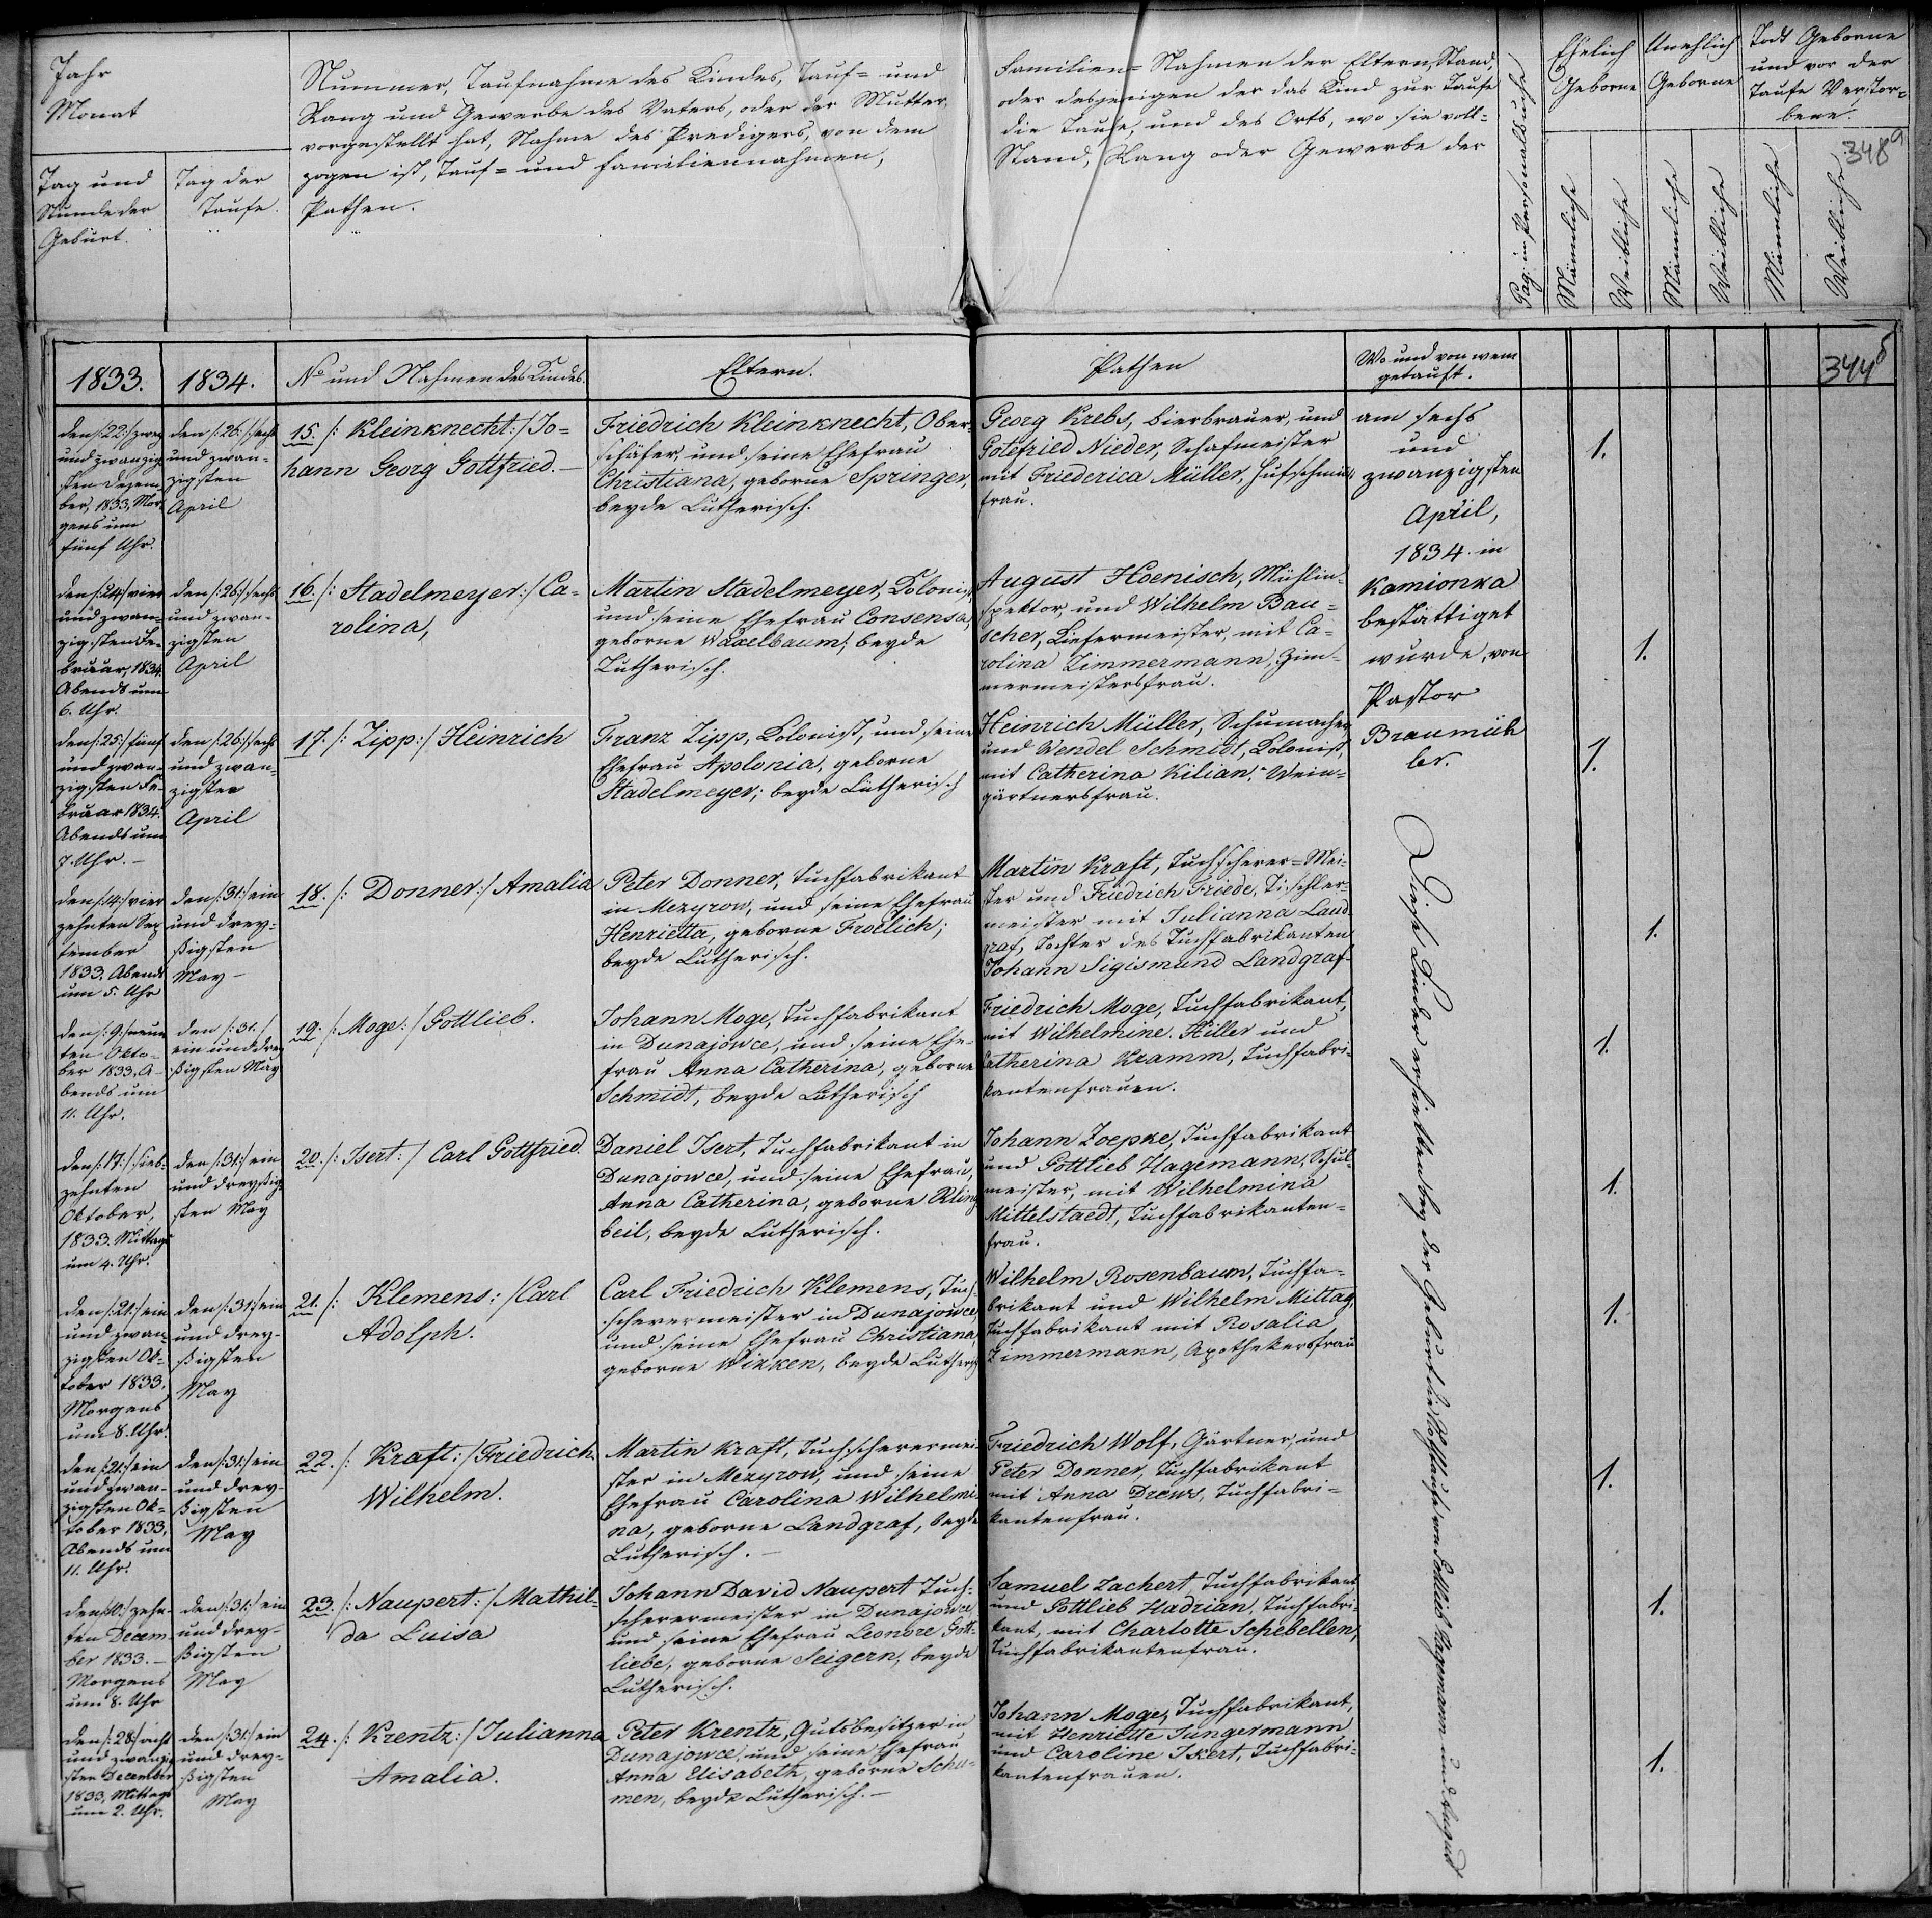 Jahr
Monat
Tag und
Stunde der
Geburt.
Tag der
Taufe.
Nummer, Taufnahme des Kindes, Tauf= und
Rang und Gewerbe des Vaters, oder der Mutter
vorgestellt hat, Nahme des Predigers, von dem
zogen ist, Tauf= und Familiennahmen,
Pathen.
Familien= Nahmen der Eltern, Stand,
oder desjenigen der das Kind zur Taufe
die Taufe, und des Orts, wo sie voll=
Stand, Rang oder Gewerbe der
Pag. im Personalbuche
Ehelich
Geborne
Unehlich
Geborne
Todt Geborne
und vor der
Taufe Verstor=
bene.
Männliche
Weibliche
Männliche
Weibliche
Männliche
Weibliche
348a
1833.
1834.
No und Nahmen des Kindes.
Eltern.
Pathen
Wo und von wem
getauft.
344b
den /:22:/ zwey
und zwanzig
sten Dezem
ber, 1833, Mor
gens um
fünf Uhr.
den /:26:/ sechs
und zwan=
zigsten
April
15. /: Kleinknecht:/ Jo=
hann Georg Gottfried.—
Friedrich Kleinknecht, Ober=
schäfer, und seine Ehefrau
Christiana, geborne Springer,
beyde Lutherisch.
Georg Krebs, Bierbrauer, und
Gottfried Nieder, Schafmeister
mit Friederica Müller, Hufschmids
frau.
am sechs
und
zwanzigsten
April,
1834. in
Kamionka
bestättiget
wurde, von
Pastor
Braumüh
ler.
1.
den /:24:/ vier
und zwan=
zigsten Fe=
bruar, 1834.
Abends um
6. Uhr.
den /:26:/ sechs
und zwan=
zigsten
April
16. /: Stadelmeyer:/ Ca=
rolina,
Martin Stadelmeyer, Kolonist,
und seine Ehefrau Consensa,
geborne Waxelbaum, beyde
Lutherisch.
August Hoenisch, Mühlin=
spektor, und Wilhelm Bau=
scher, Liefermeister, mit Ca=
rolina Zimmermann, Zim=
mermeistersfrau.
1.
den /:25:/ fünf
und zwan=
zigsten Fe=
bruar 1834.
Abends um
7. Uhr.—
den /:26:/ sechs
und zwan=
zigsten
April
17. /: Zipp:/ Heinrich
Franz Zipp, Kolonist, und seine
Ehefrau Apolonia, geborne
Stadelmeyer; beyde Lutherisch
Heinrich Müller, Schumacher,
und Wendel Schmidt, Kolonist,
mit Catherina Kilian, Wein=
gärtnersfrau.
1.
den /:14:/ vier
zehnten Sep
tember
1833. Abends
um 5. Uhr
den /:31:/ ein
und drey=
ßigsten
May—
18. /: Donner:/ Amalia
Peter Donner, Tuchfabrikant
in Mezyrow, und seine Ehefrau
Henrietta, geborne Froelich;
beyde Lutherisch.
Martin Kraft, Tuchscherer=Mei=
ster und Friedrich Friede, Tischler=
meister mit Julianna Land
graf, Tochter des Tuchfabrikanten
Johann Sigismund Landgraf.
1.
den /:9:/ neun
ten Okto=
ber 1833. A=
bends um
11. Uhr.
den /:31:/
ein und drey
ßigsten May
19. /: Moge:/ Gottlieb.
Johann Moge, Tuchfabrikant
in Dunajowce, und seine Ehe=
frau Anna Catherina, geborne
Schmidt, beyde Lutherisch
Friedrich Moge, Tuchfabrikant,
mit Wilhelmine Hiller und
Catherina Kramm, Tuchfabri=
kantenfrauen.
1.
den /:17:/ sieb=
zehnten
Oktober,
1833. Mittags
um 4. Uhr.
den /:31:/ ein
und dreyßig=
sten May
20. /: Isert:/ Carl Gottfried.
Daniel Isert, Tuchfabrikant in
Dunajowce, und seine Ehefrau,
Anna Catherina, geborne Kling
beil, beyde Lutherisch.
Johann Zoepke, Tuchfabrikant
und Gottlieb Hagemann, Schul=
meister, mit Wilhelmina
Mittelstaedt, Tuchfabrikanten=
frau.
1.
den /:21:/ ein
und zwan
zigsten Ok=
tober 1833.
Morgens
um 8. Uhr.
den /:31:/ ein
und drey=
ßigsten
May
21. /: Klemens:/ Carl
Adolph.
Carl Friedrich Klemens, Tuch=
scherermeister in Dunajowce,
und seine Ehefrau Christiana,
geborne Wikken, beyde Lutherisch
Wilhelm Rosenbaum, Tuchfa=
brikant und Wilhelm Mittag,
Tuchfabrikant mit Rosalia
Zimmermann, Apothekersfrau
1.
den /:21:/ ein
und zwan=
zigsten Ok=
tober 1833,
Abends um
11. Uhr.
den /:31:/ ein
und drey=
ßigsten
May
22. /: Kraft:/ Friedrich
Wilhelm.
Martin Kraft, Tuchscherermei=
ster in Mezyrow, und seine
Ehefrau Carolina Wilhelmi=
na, geborne Landgraf, beyde
Lutherisch.—
Friedrich Wolf, Gärtner, und
Peter Donner, Tuchfabrikant
mit Anna Drews, Tuchfabri=
kantenfrau.
1.
den /:10:/ zehn=
ten Decem=
ber 1833.—
Morgens
um 8. Uhr
den /:31:/ ein
und drey=
ßigsten
May
23. /: Naupert:/ Mathil=
da Luisa
Johann David Naupert Tuch=
scherermeister in Dunajowce,
und seine Ehefrau Leonore Gott=
liebe, geborne Seigern, beyde
Lutherisch.
Samuel Zachert, Tuchfabrikant,
und Gottlieb Hadrian, Tuchfabri=
kant, mit Charlotte Schebellen,
Tuchfabrikantenfrau.
1.
den /:28:/ acht
und zwanzig
sten December
1833, Mittags
um 2. Uhr.
den /:31:/ ein
und drey=
ßigsten
May
24. /: Krentz:/ Julianna
Amalia.
Peter Krentz, Gutsbesitzer in
Dunajowce, und seine Ehefrau
Anna Elisabeth, geborne Scha=
men, beyde Lutherisch.—
Johann Moge, Tuchfabrikant,
mit Henriette Jungermann
und Caroline Isert, Tuchfabri=
kantenfrauen.
1.
Diese Kinder erhielten bey der Geburt die Nothtaufe von Gottlieb Hagemann und August